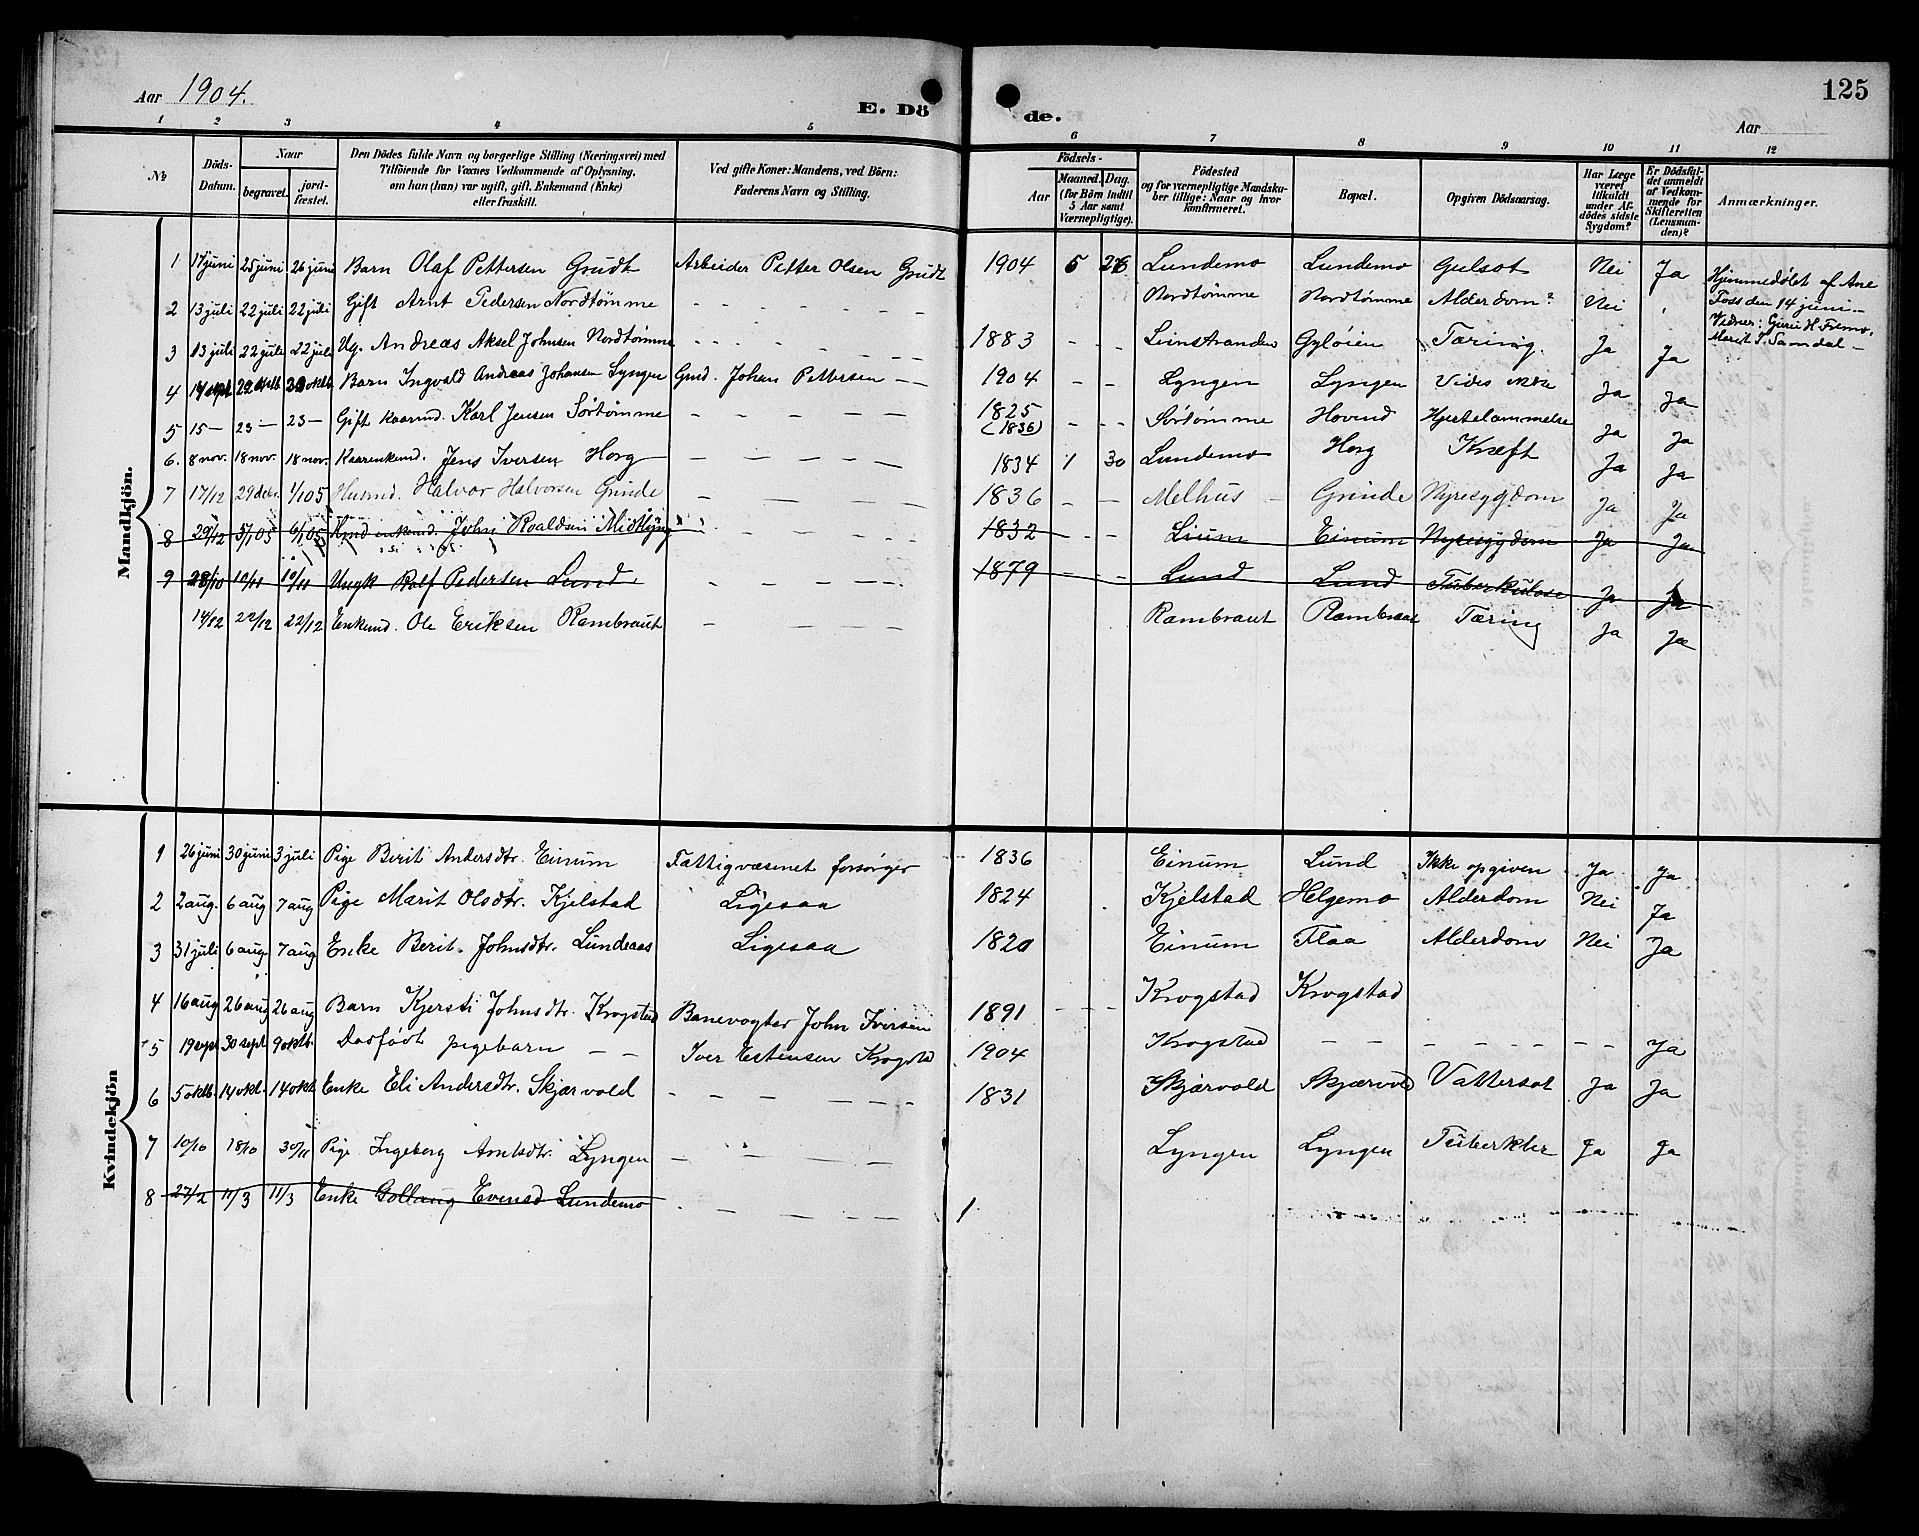 Aar 1904.
E. Dö de.
125
Aar
1 2 3 4 5 6 7 8 9 10 11 12
No
Döds-Datum.
Naar
begravet.
jord-fæstet.
Den Dödes fulde Navn og borgerlige Stilling (Næringsvei) med
Tilföiende for Voxnes Vedkommende af Oplysning,
om han (hun) var ugift, gift, Enkemand (Enke)
eller fraskilt.
Ved gifte Koner: Mandens, ved Börn:
Faderens Navn og Stilling.
Födsels-
Aar
Maaned. Dag.
(for Börn indtil
5 Aar samt
Værnepligtige).
Födested
og for værnepligtige Mandska-
ber tillige: Naar og hvor
konfirmeret.
Bopæl.
Opgiven Dödsaarsag.
Har Læge
været
tilkaldt
under Af-
dödes sidste
Sygdom?
Er Dödsfal-
det anmeldt
af Vedkom-
mende for
Skifteretten
(Lensman-
den)?
Anmærkninger.
Mandkjön.
1 17 juni 25 juni 26 juni Barn Olaf Pettersen Grudt Arbeider Petter Olsen Grudt 1904 5 26 Lundemo Lundemo Gulsot Nei Ja Hjemmedøbt af Ane
Foss den 14 juni -
Vidner: Guru H. Fremo,
Marit J. Samdal -
2 13 juli 22 juli 22 juli Gift Arnt Pedersen Nordtømme - - - - - Nordtømme Nordtømme Alderdom? Nei
3 13 juli 22 juli 22 juli Ug. Andreas Aksel Johnsen Nordtømme - - - - - 1883 - - - Leinstranden Gyløien Tæring. Ja Ja
4 Barn Ingvald Andreas Johansen Lyngen Gmd. Johan Pettersen - - 1904 - - Lyngen Lyngen Ja Ja
5 15 - 23 - 23 - Gift kaarmd. Karl Jensen Sørtømme - - - - - 1825 (1836) - - - Sørtømme Hovind Hjertelammelse Ja Ja
6. 8 nov. 18 nov. 18 nov. Kaarenkemd. Jens Iversen Horg - - - - - 1834 1 30 Lundemo Horg Kræft Ja Ja
7 17/12 29 decbr. 1/1 05 Husmd. Halvor Halvorsen Grinde - - - - - 1836 - - Melhus - Grinde Nyresygdom Ja Ja
8 29/12 5/1 05 6/1 05 Hmd enkemd. John Roaldsen Midtlyng - - - - 1832 - - - Einum Nyresygdom Ja Ja
9 28/10 10/11 10/11 Ungk Rolf Pedersen Lund. - - - - - 1879 - - Lund Lund Tuberkulose Ja Ja
14/12 22/12 22/12 Enkemd. Ole Eriksen Rambraut - - - - - Rambraut Rambraut Tæring Ja Ja
Kvindekjön
1 26 juni 30 juni 3 juli Pige Berit Andersdtr. Einum Fattigvæsenet forsørger 1836 Einum Lund Ikke opgiven Ja Ja
2 2 aug. 6 aug 7 aug Pige Marit Olsdtr. Kjelstad Ligesaa 1824 Kjelstad Helgemo Alderdom Nei Ja
3 31 juli 6 aug. 7 aug Enke Berit. Johnsdtr. Lundeaas Ligesaa 1820 Einum Flaa Alderdom Nei Ja
4 16 aug 26 aug 26 aug Barn Kjersti Johnsdtr. Krogstad Banevogter John Iversen 1891 - - - Krogstad Krogstad
5 19 sept 30 sept. 9 oktb. Dødfødt pigebarn - - Iver Estensen Krogstad 1904 Krogstad - - - - - - - Ja
6 5 oktb. 14 okt. 14 okt. Enke Eli Andersdtr. Skjærvold - - - - - 1831 Skjærvold Skjærvold Vattersot Ja Ja
7 10/10 18/10 30/11 Pige Ingeborg Arntsdtr. Lyngen - - - - - Lyngen Lyngen Ja Ja
8 27/2 11/3 11/3 Enke Gollaug Evensd Lundemo - - - - - 1